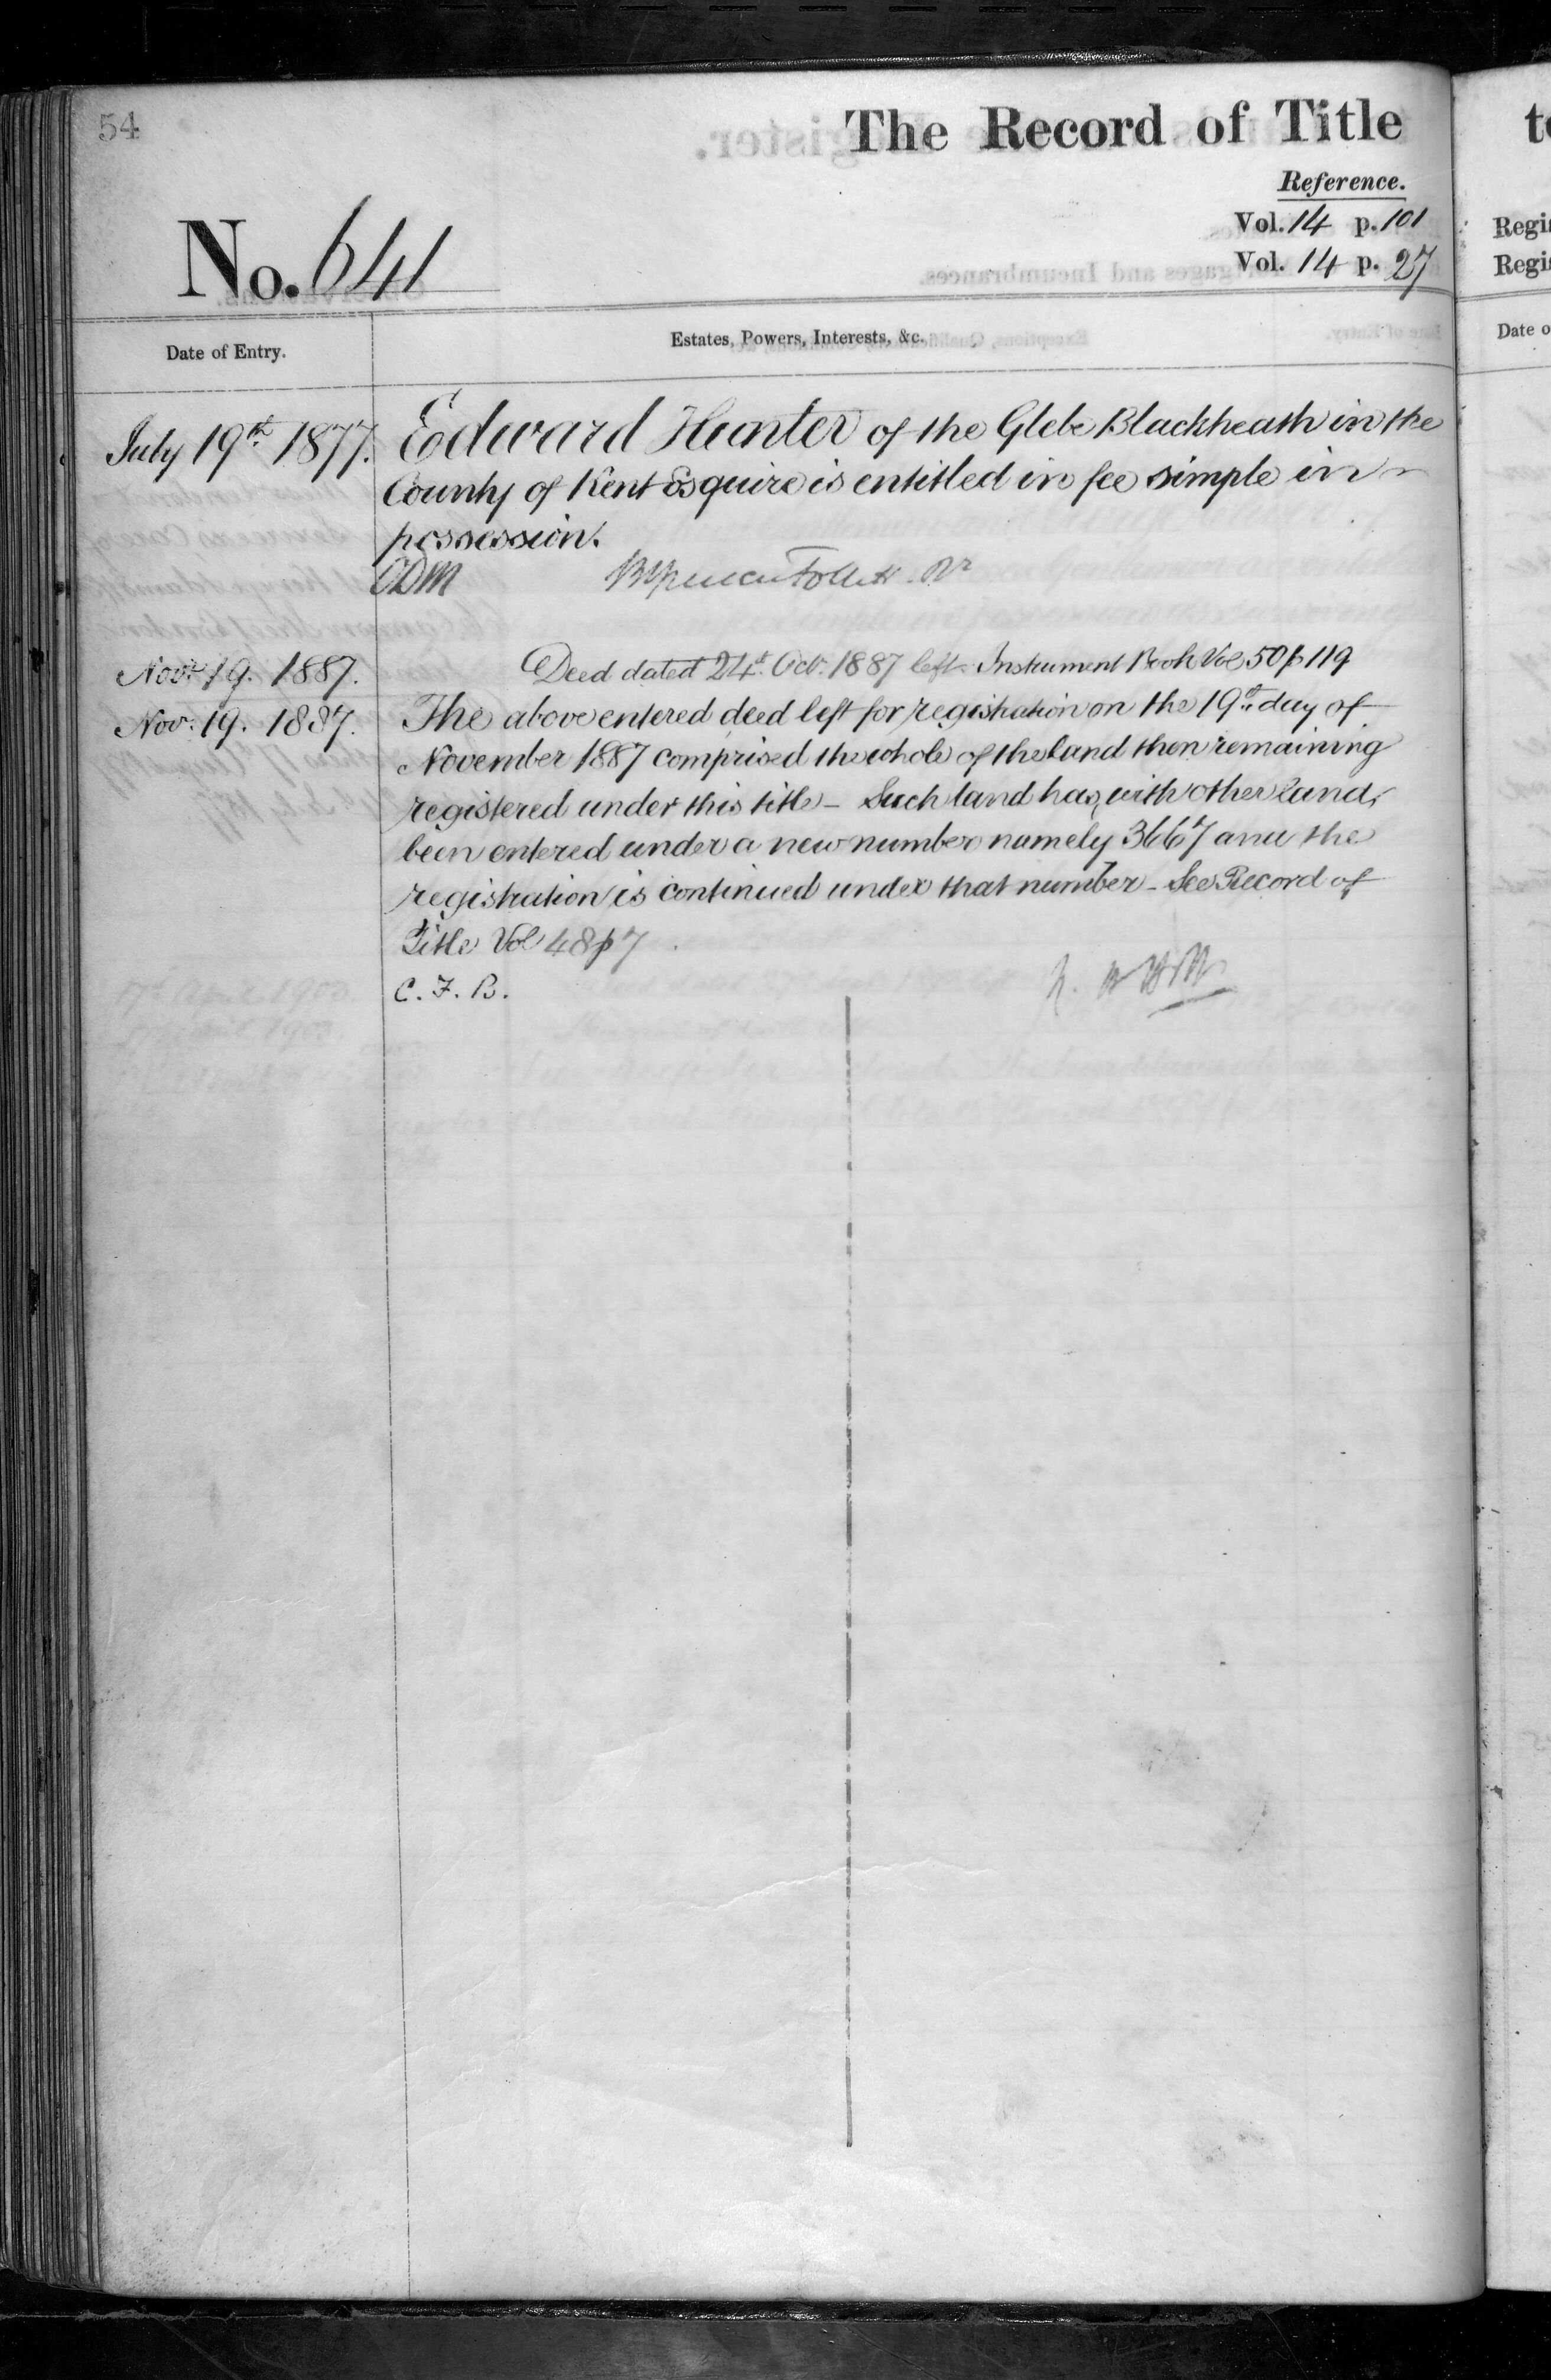 54
The Record of Title
Reference.
Vol. 14 p. 101
Vol. 14 p. 27
No. 641
Date of Entry.
Estates, Powers, Interests, &c.
July 19th 1877.
Edward Hunter of the Glebe Blackheath in the
County of Kent Esquire is entitled in fee simple in
possession.
Nov. 19. 1887.
Deed dated 24th Oct. 1887 left. Instrument Book Vol 50 p 119
Nov. 19. 1887.
The above entered deed left for registration on the 19th day of
November 1887 comprised the whole of the land then remaining
registered under this title – Such land has, with other land,
been entered under a new number namely 3667 and the
registration is continued under that number – See Record of
Title Vol 48 p 7
C. F. B.
to
Regis
Regis
Date o